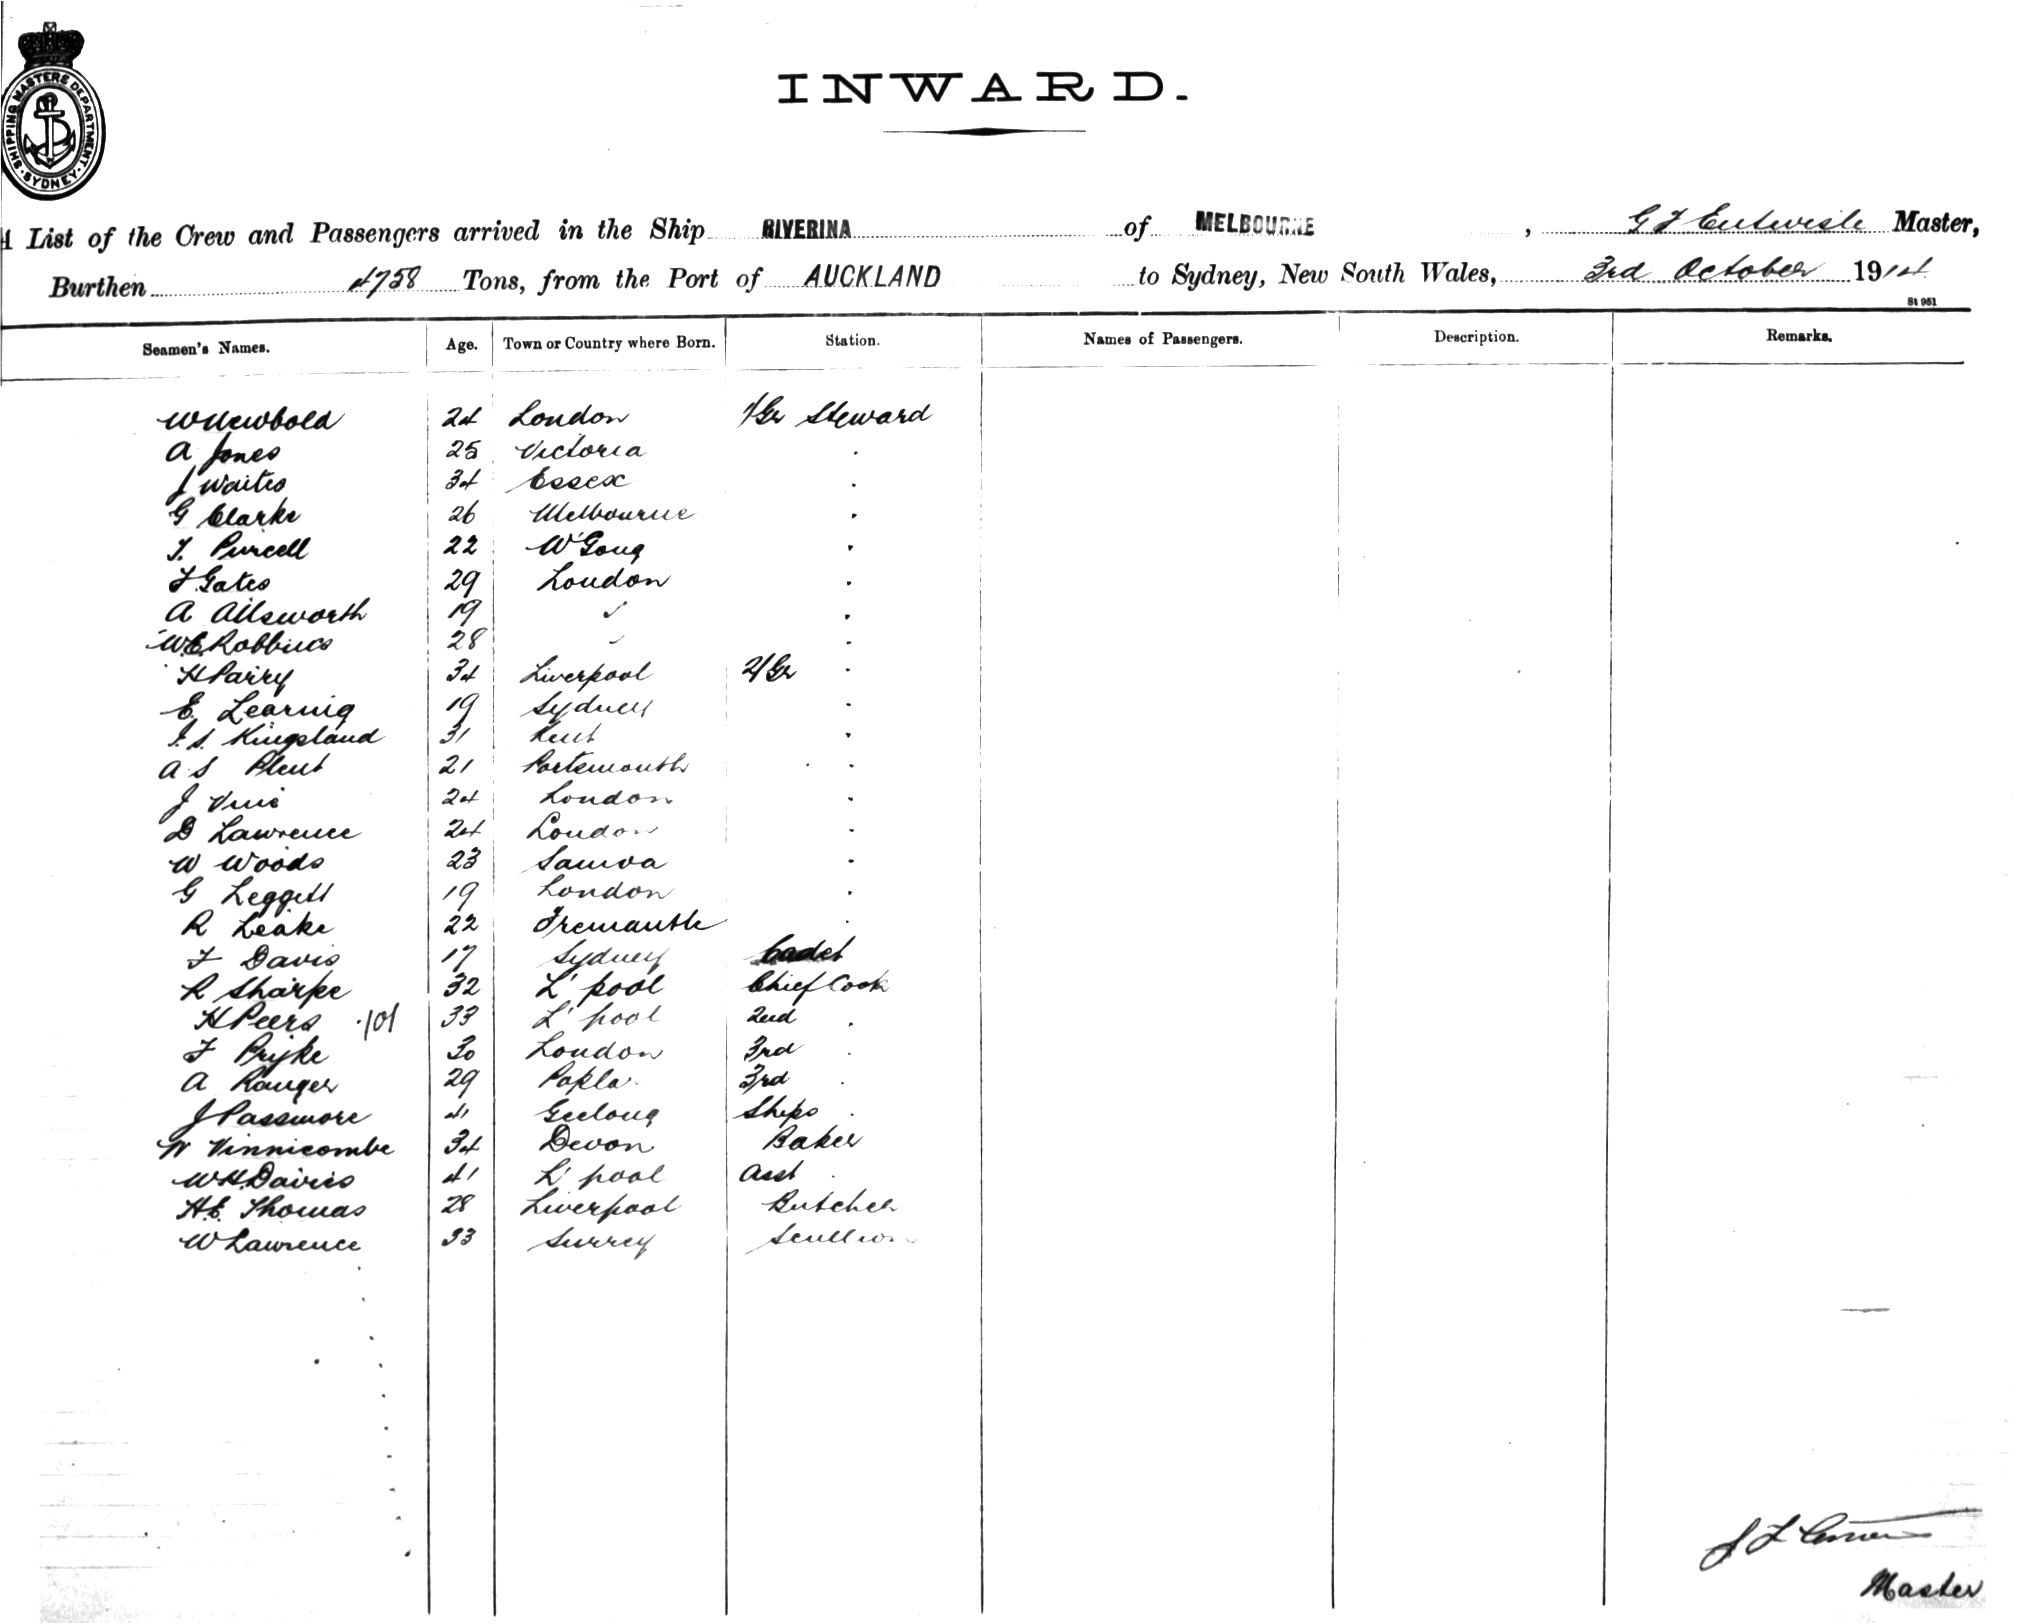 SHIPPING MASTERS DEPARTMENT · SYDNEY ·
INWARD.
A List of the Crew and Passengers arrived in the Ship RIVERINA of MELBOURNE, G F Entwisle Master,
Burthen 4758 Tons, from the Port of AUCKLAND to Sydney, New South Wales, 3rd October 1914
St 951
Seamen's Names. Age. Town or Country where Born. Station. Names of Passengers. Description. Remarks.
W Newbold 24 London 1/Gr Steward
A Jones 25 Victoria .
J Waites 34 Essex .
G Clarke 26 Melbourne .
T. Purcell 22 W'Gong .
F Gates 29 London .
A Ailsworth 19 " .
W.E. Robbins 28 " .
H Parry 34 Liverpool 2/Gr .
E. Learnig 19 Sydney .
J. S. Kingsland 31 Kent .
A S Plent 21 Portsmouth .
J 24 London .
D Lawrence 24 London .
W Woods 23 Samoa .
G Leggett 19 London .
R Leake 22 Fremantle .
F Davis 17 Sydney Cadet
R Sharpe 32 L'pool Chief Cook
H Peers 101 33 L'pool 2nd .
F Pryke 30 London 3rd .
A Ranger 29 Popla. 3rd .
J Passmore 41 Geelong Ships .
W Vinnicombe 34 Devon Baker
W H. Davies 41 L'pool Asst .
H.E. Thomas 28 Liverpool Butcher
W Lawrence 33 Surrey Scullion
Master